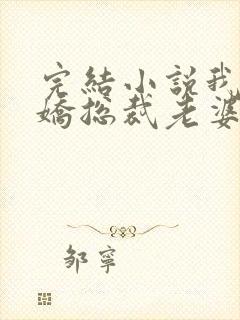 完結小說我
嬌總裁老婆
鄒寧